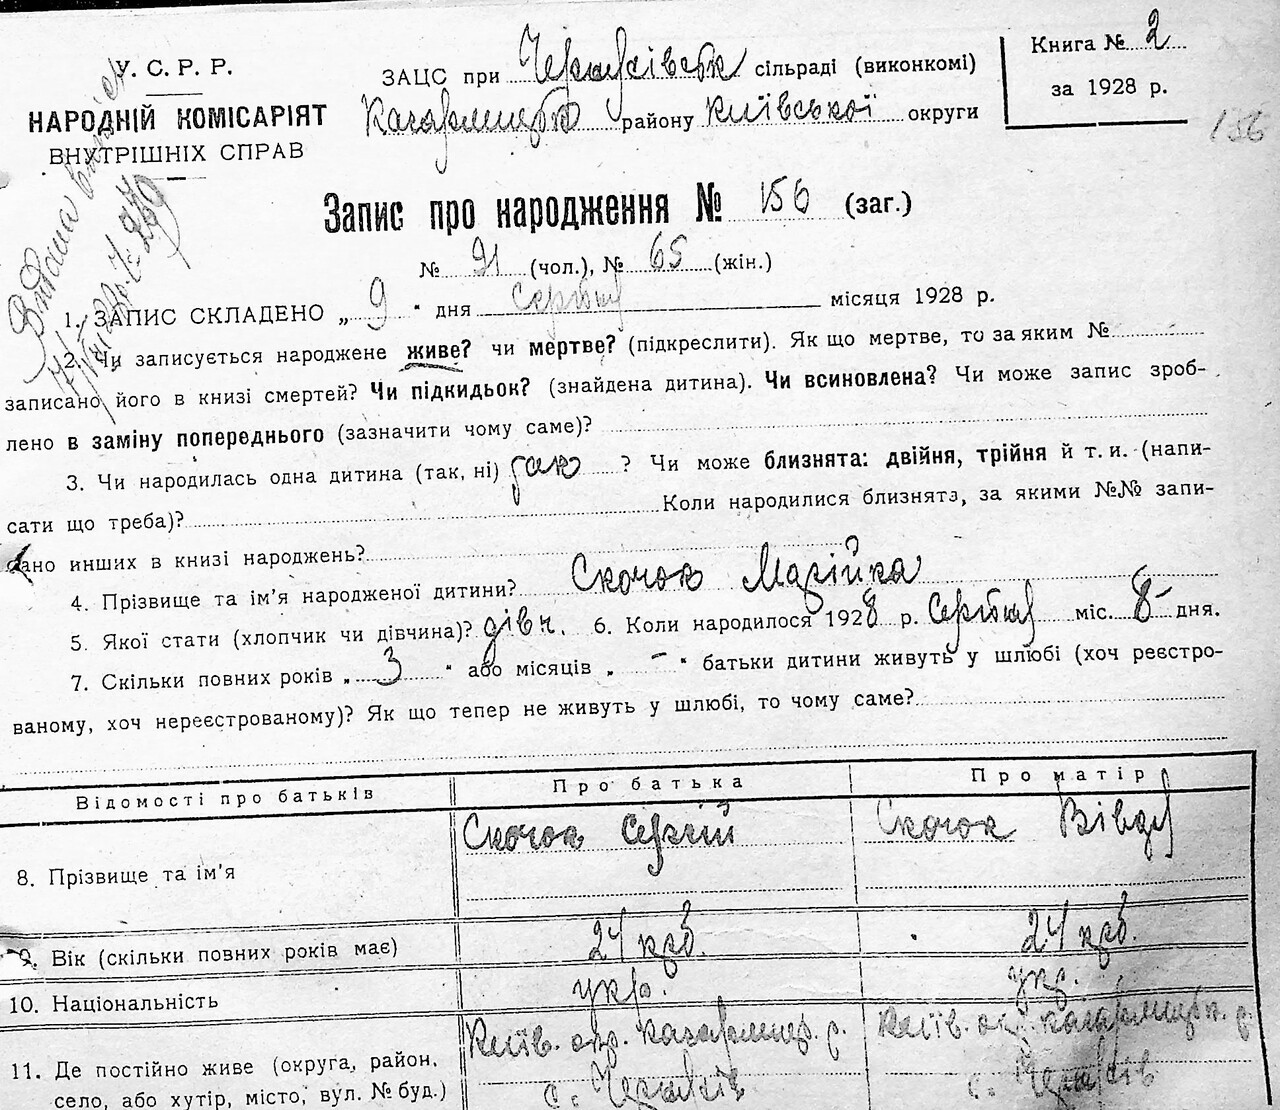 У. С. Р. Р.
НАРОДНІЙ КОМІСАРІЯТ
ВНУТРІШНІХ СПРАВ
ЗАЦС при сільраді (виконкомі)
району Київської округи
Книга № 2
за 1928 р.
156
Запис про народження № 156 (заг.)
№ 91 (чол.), № 65 (жін.)
1. ЗАПИС СКЛАДЕНО „ 9 " дня Серпня місяця 1928 р.
2. Чи записується народжене живе? чи мертве? (підкреслити). Як що мертве, то за яким №
записано його в книзі смертей? Чи підкидьок? (знайдена дитина). Чи всиновлена? Чи може запис зроб-
лено в заміну попереднього (зазначити чому саме)?
3. Чи народилась одна дитина (так, ні) так ? Чи може близнята: двійня, трійня й т. и. (напи-
сати що треба)? Коли народилися близнята, за якими №№ запи-
сано инших в книзі народжень?
4. Прізвище та ім'я народженої дитини? Скочок Марійка
5. Якої стати (хлопчик чи дівчина)? дівч. 6. Коли народилося 1928 р. Серпня міс. 8 дня.
7. Скільки повних років „ 3 " або місяців „ – " батьки дитини живуть у шлюбі (хоч реєстро-
ваному, хоч нереєстрованому)? Як що тепер не живуть у шлюбі, то чому саме?
Відомості про батьків Про батька Про матір
8. Прізвище та ім'я Скочок Сергій Скочок Вівдя
9. Вік (скільки повних років має) 24 24
10. Національність укр. укр.
11. Де постійно живе (округа, район, Київ. окр. р. Київ. ок. р.
село, або хутір, місто, вул. № буд.) с. с.